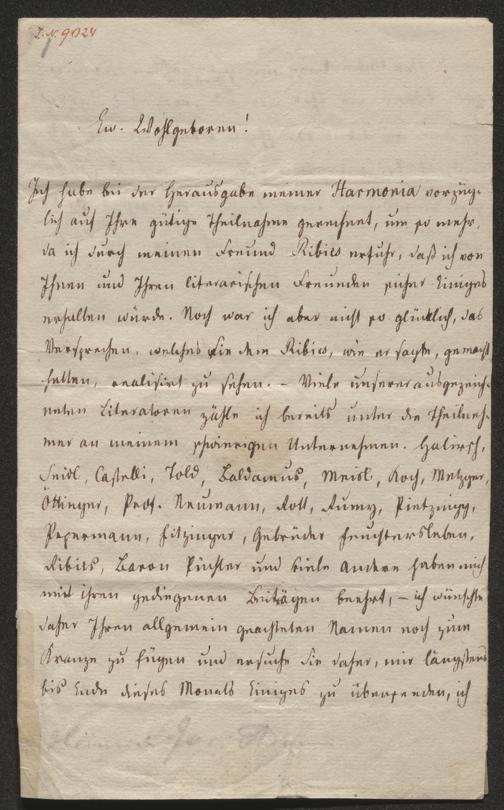 I.N. 9024
Ew. Wohlgeboren!
Ich habe bei der Herausgabe meiner Harmonia vorzüg-
lich auf Ihre gütige Theilnahme gerechnet, um so mehr,
da ich durch meinen Freund Ribics erfuhr, daß ich von
Ihnen und Ihren literarischen Freunden sicher Einiges
erhalten würde. Noch war ich aber nicht so glücklich, das
Versprechen, welches Sie dem Ribics, wie er sagte, gemacht
hatten, realisirt zu sehen. – Viele unserer ausgezeich-
neten Literatoren zähle ich bereits unter die Theilneh-
mer an meinem schwierigen Unternehmen. Halirsch,
Seidl, Castelli, Told, Baldamus, Meisl, Koch, Metzger,
Öttinger, Prof. Neumann, Rott, Rumy, Pietznigg,
Pepermann, Fitzinger, Gebrüder Feuchtersleben,
Ribics, Baron Püchler und viele Andere haben mich
mit ihren gediegenen Beiträgen beehrt, – ich wünschte
daher Ihren allgemein geachteten Namen noch zum
Kranze zu fügen und ersuche Sie daher, mir längstens
bis Ende dieses Monats Einiges zu übersenden, ich